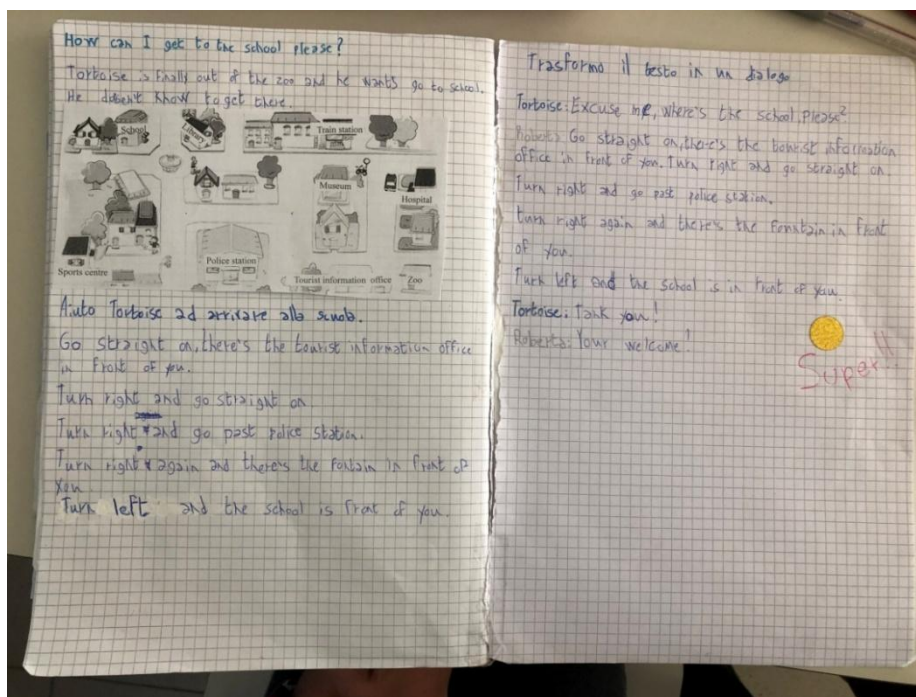 How can I get to the school please?
Tortoise is finally out of the zoo and he wants go to school.
He doesen't know to get there.
School
Library
Train station
Museum
Hospital
Sports centre
Police station
Tourist information office
Zoo
Aiuto Tortoise ad arrivare alla scuola.
Go straight on, there's the tourist information office
in front of you.
Turn right and go straight on.
Turn right and go past police station.
Turn right again and there's the fontain in front of
you
Turn left and the school is front of you.
Trasformo il testo in un dialogo
Tortoise: Excuse me, where's the school, please?
Go straight on, there's the tourist information
office in front of you. Turn right and go straight on.
Turn right and go past police station.
turn right again and there's the fountain in front
of you.
Turn left and the school is in front of you.
Tortoise: Tank you!
Roberta: Your welcome!
Super!!